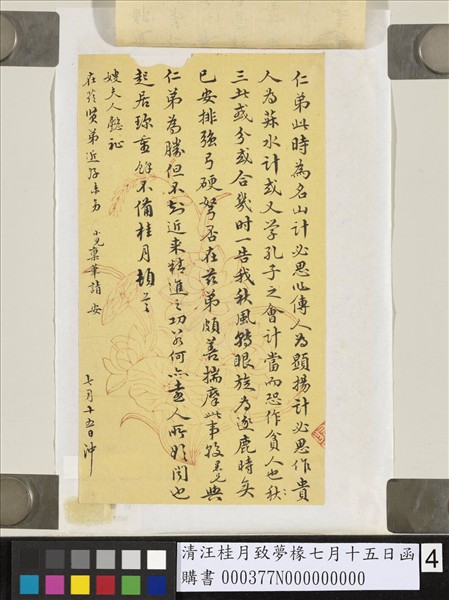 仁弟此時為名山計必思心傳人為顯揚計必思作貴
人為菽水計或又學孔子之會計當而恐作貧人也秋
三此或分或合幾時一告我秋風轉眼旋為逐鹿時矣
已安排強弓硬弩否在茲弟頗善揣摩此事較兄與
仁弟為勝但不知近來精進之功若何亦所人所欲聞也
起居珍重餘不備桂月頓首
嫂夫人懿祉
在茲賢弟近好未另
小兒葉華請安
七月十五日沖
清汪桂月致夢橡七月十五日函
購書 000377N000000000
4